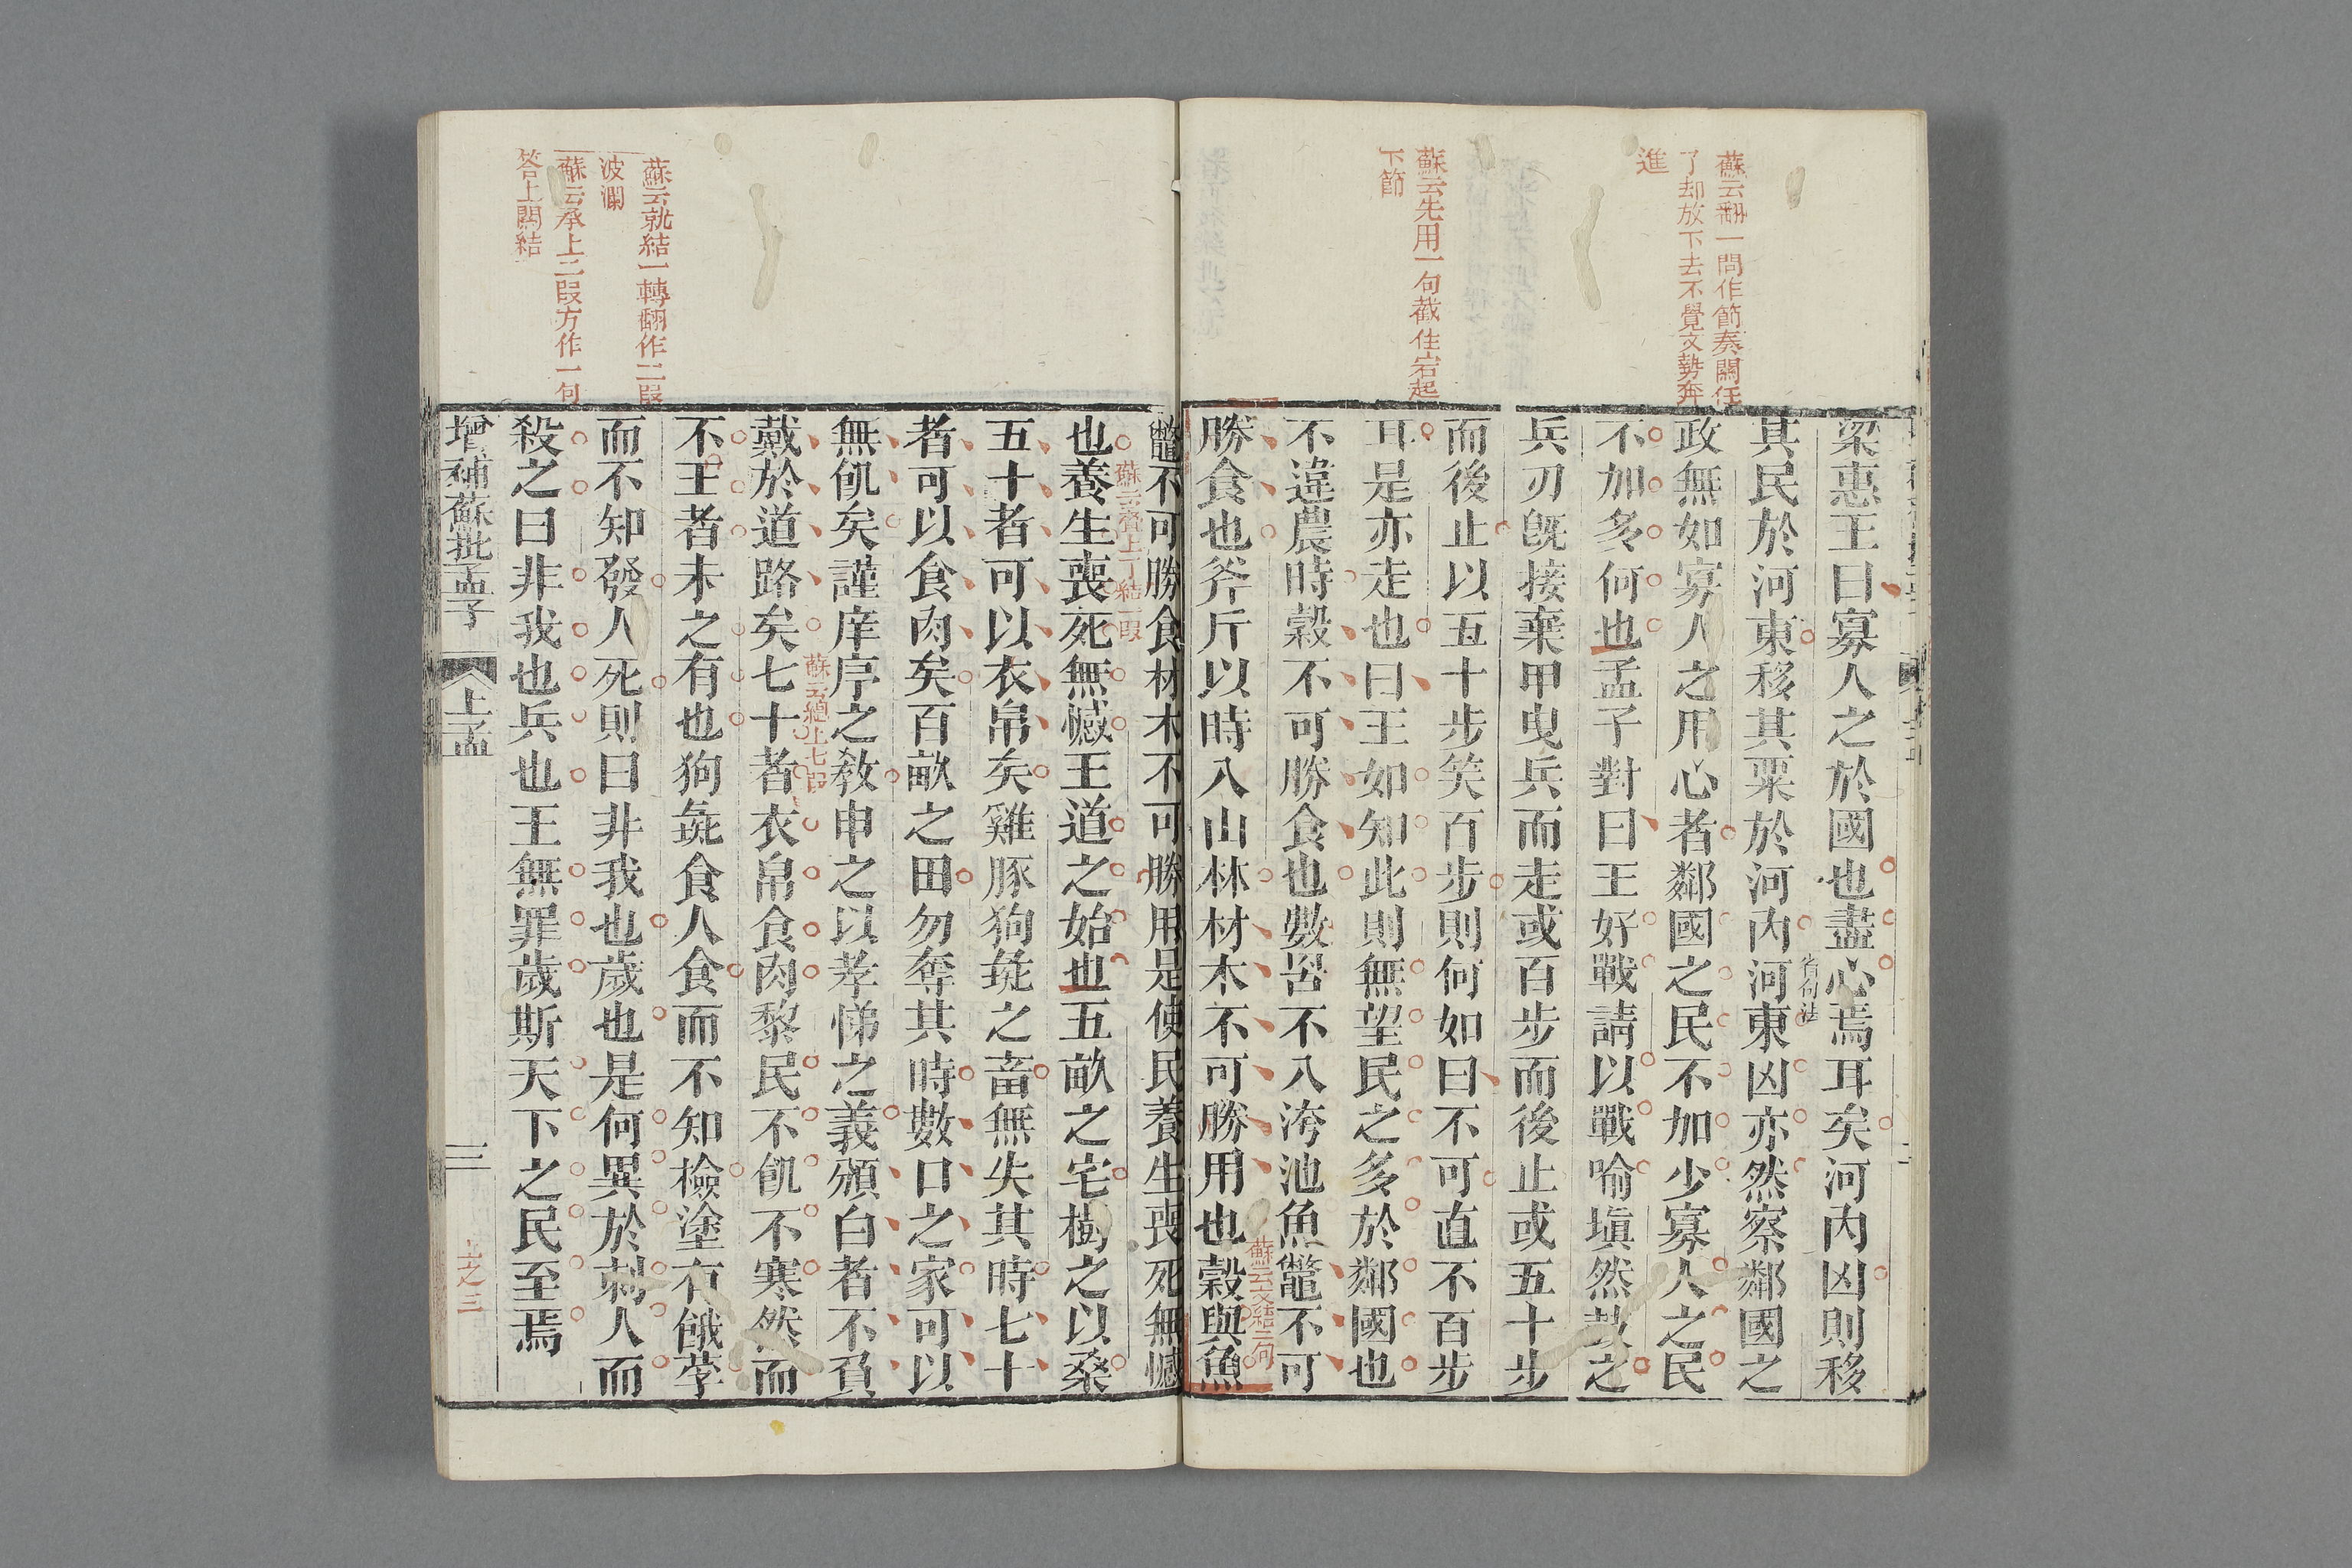 蘇云翻一問作節奏關任
了却放下去不覺文勢奔
進
蘇云先用一句截住宕起
下節
梁惠王曰寡人之於國也盡心焉耳矣河內凶則移
其民於河東移其粟於河內河東凶亦然察鄰國之
省句法
政無如寡人之用心者鄰國之民不加少寡人之民
不加多何也孟子對曰王好戰請以戰喻塡然鼓之
兵刃旣接棄甲曳兵而走或百步而後止或五十步
而後止以五十步笑百步則何如曰不可直不百步
耳是亦走也曰王如知此則無望民之多於鄰國也
不違農時穀不可勝食也數罟不入洿池魚鼈不可
蘇云交結二句
勝食也斧斤以時入山林材木不可勝用也穀與魚
蘇云就結一轉翻作二段
波瀾
蘇云承上二段方作一句
答上關結
鼈不可勝食材木不可勝用是使民養生喪死無憾
蘇云答上了結一段
也養生喪死無憾王道之始也五畝之宅樹之以桑
五十者可以衣帛矣雞豚狗彘之畜無失其時七十
者可以食肉矣百畝之田勿奪其時數口之家可以
無飢矣謹庠序之敎申之以孝悌之義頒白者不負
蘇云總上七段
戴於道路矣七十者衣帛食肉黎民不飢不寒然而
不王者未之有也狗彘食人食而不知檢塗有餓莩
而不知發人死則曰非我也歲也是何異於刺人而
殺之曰非我也兵也王無罪歲斯天下之民至焉
增補蘇批孟子 上孟 三
上之三